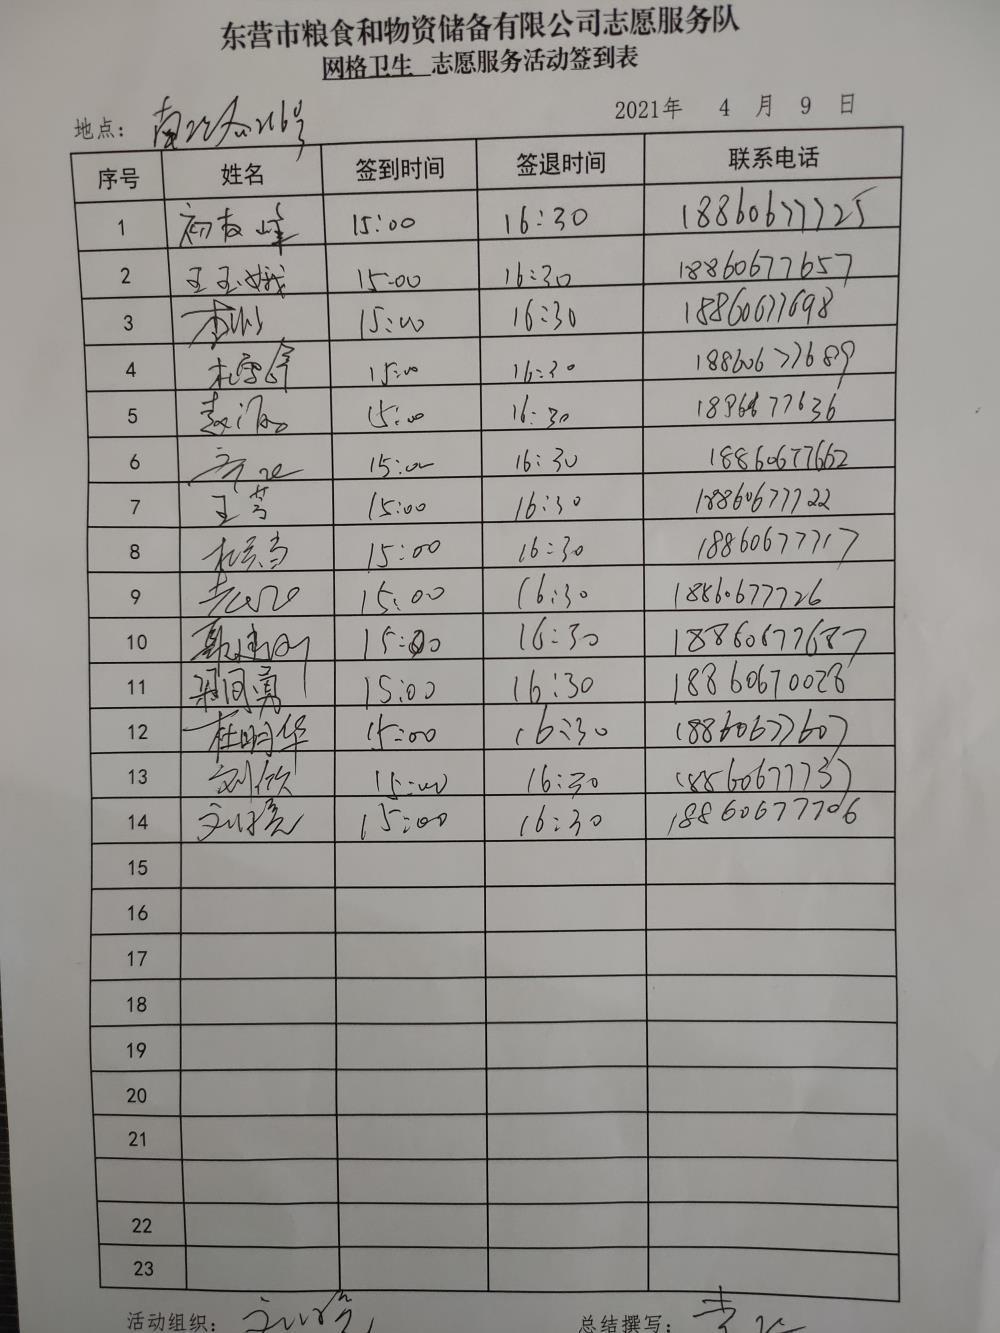 东营市粮食和物资储备有限公司志愿服务队
网格卫生 志愿服务活动签到表
地点： 2021年 4 月 9 日
序号 姓名 签到时间 签退时间 联系电话
1 15:00 16:30 18860677725
2 王玉娥 15:00 16:30 18860677657
3 15:00 16:30 18860677698
4 15:00 16:30 18860677689
5 15:00 16:30
6 15:00 16:30 18860677662
7 王芳 15:00 16:30 18860677722
8 15:00 16:30 18860677717
9 15:00 16:30 18860677726
10 15:00 16:30 18860677687
11 15:00 16:30 18860670028
12 杜明华 15:00 16:30 18860677607
13 刘欣 15:00 16:30 18860677737
14 15:00 16:30 18860677706
15
16
17
18
19
20
21
22
23
活动组织： 总结撰写：